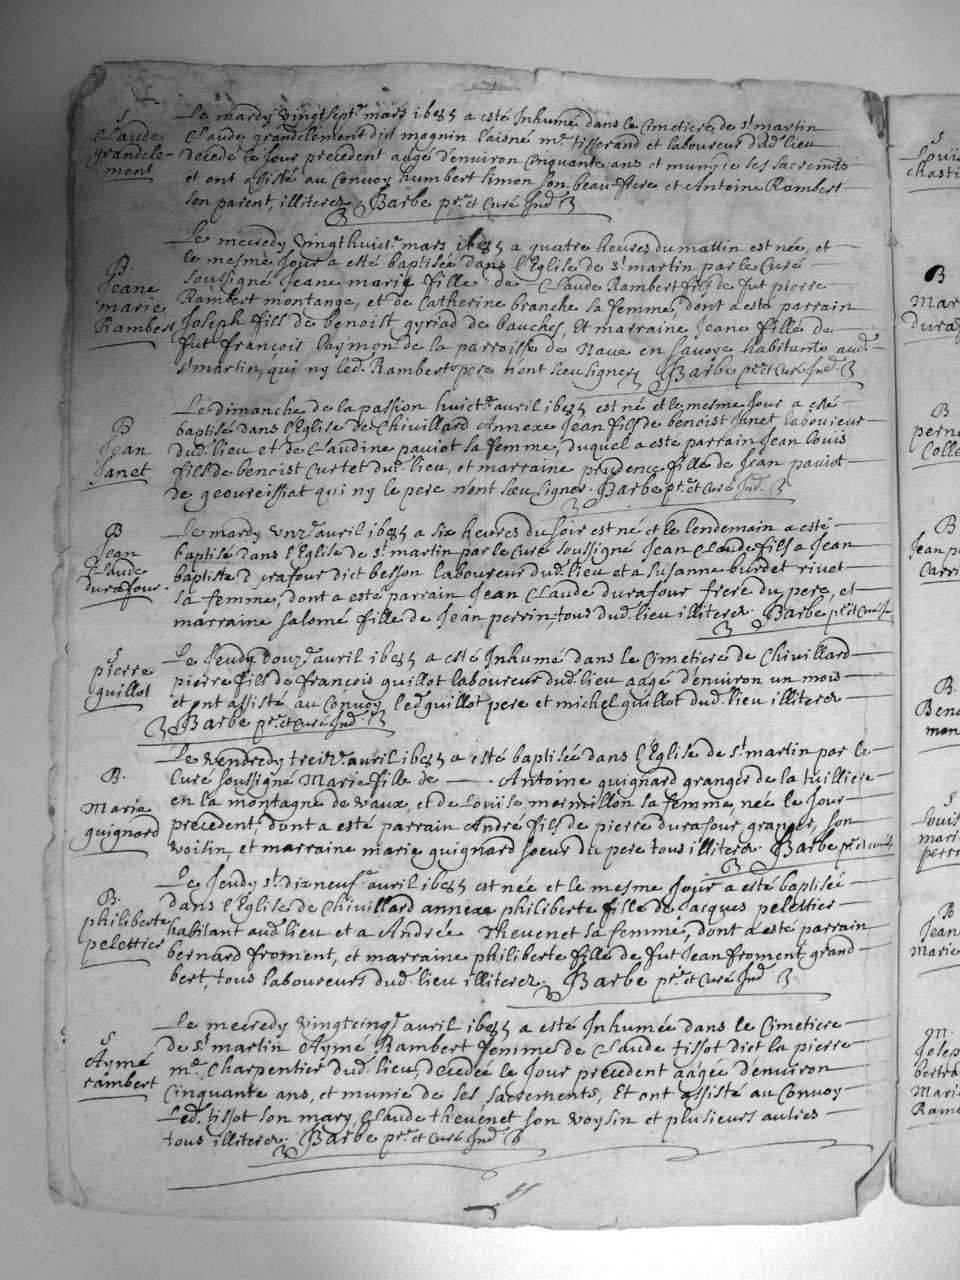 S
Claude
grandcle-
ment
Le mardy vingt sept.e mars 1685 a esté Inhumé dans le Cimetiere de st martin
Claude grandclement dict magnin laisné m.e tisserand et laboureur dud. lieu
decedé le Jour precedent aagé d'environ Cinquante ans et muny de ses sacremts
et ont assisté au Convoy humbert simon son beau frere et Antoine Rambert
son parent, illiterez Barbe pr.e et Curé Ind.
B.
Jeane
marie
Rambert
Le mecredy vingt huict.e mars 1685 a quatre heures du mattin est née, et
le mesme Jour a esté baptisée dans l'Eglise de st martin par le Curé
soussigné Jeane marie fille de Claude Rambert fils de fut pierre
Rambert montange, et de Catherine branche sa femme, dont a esté parrain
Joseph fils de benoist gyriad de bauches, Et marraine Jeane fille de
fut françois laymon de la parroisse de Nave en Savoye habitante aud.
st martin, qui ny led. Rambert pere n'ont sceu signer Barbe pr.e et Curé Ind.
B
Jean
Janet
Le dimanche de la passion huict.e avril 1685 est né et le mesme Jour a esté
baptisé dans l'Eglise de Chivillard Annexe Jean fils de benoist Janet laboureur
dud. lieu et de Claudine paviot sa femme, duquel a esté parrain Jean Louis
fils de benoist Curtet dud. lieu, et marraine prudence fille de Jean paviot
de geovreissiat qui ny le pere n'ont sceu signer. Barbe pr.e et Curé Ind.
B
Jean
Claude
durafour.
Le mardy unz.e avril 1685 a six heures du soir est né et le lendemain a esté
baptisé dans l'Eglise de st martin par le Curé soussigné Jean Claude fils a Jean
baptiste Durafour dict besson laboureur dud. lieu et a susanne burdet rivet
sa femme, dont a esté parrain Jean Claude durafour frere du pere, et
marraine salomé fille de Jean perrin, tous dud. lieu illiterez Barbe pr.e et Curé In
S
pierre
guillot
Le Jeudy douz.e avril 1685 a esté Inhumé dans le Cimetiere de Chivillard
pierre fils de françois guillot laboureur dud. lieu aagé d'environ un mois
et ont assisté au Convoy led. guillot pere et michel guillot dud. lieu illiterez
Barbe pr.e et Curé Ind.
B.
Marie
guignard
Le vendredy treiz.e avril 1685 a esté baptisée dans l'Eglise de st martin par le
Curé soussigné Marie fille de Antoine guignard granger de la tuilliere
en la montagne de vaux, et de Louise mermillon sa femme née le Jour
precedent, dont a esté parrain André fils de pierre durafour granger, son
voisin, et marraine marie guignard soeur du pere tous illiterez. Barbe pr.e et curé
B.
philiberte
pelettier
Le Jeudy st dixneuf.e avril 1685 est née et le mesme Jour a esté baptisée
dans l'Eglise de Chivillard annexe philiberte fille de Jacques pelettier
habitant aud. lieu et a Andrée Thevenet sa femme, dont a esté parrain
bernard froment, et marraine philiberte fille de fut Jean froment grand
bert, tous laboureurs dud. lieu illiterez Barbe pr.e et Curé Ind
S
Aymé
rambert
Le mecredy vingtcinq.e avril 1685 a esté Inhumée dans le Cimetiere
de st martin Aymé Rambert femme de Claude tissot dict la pierre
m.e Charpentier dud. lieu, decedée le Jour precedent aagée d'environ
Cinquante ans, et munie de ses sacrements, Et ont assisté au Convoy
Led. tissot son mary, Claude thevenet son voysin et plusieurs autres
tous illiterez. Barbe pr.e et Curé Ind
S
Louis
chasti
B
Mar
duraf
B
perne
Colle
B
Jean p
Carri
B.
Beno
mon
S
Louis
mari
perr
B
Jean
Marie
M.
Josep
bertra
Mari
Ram